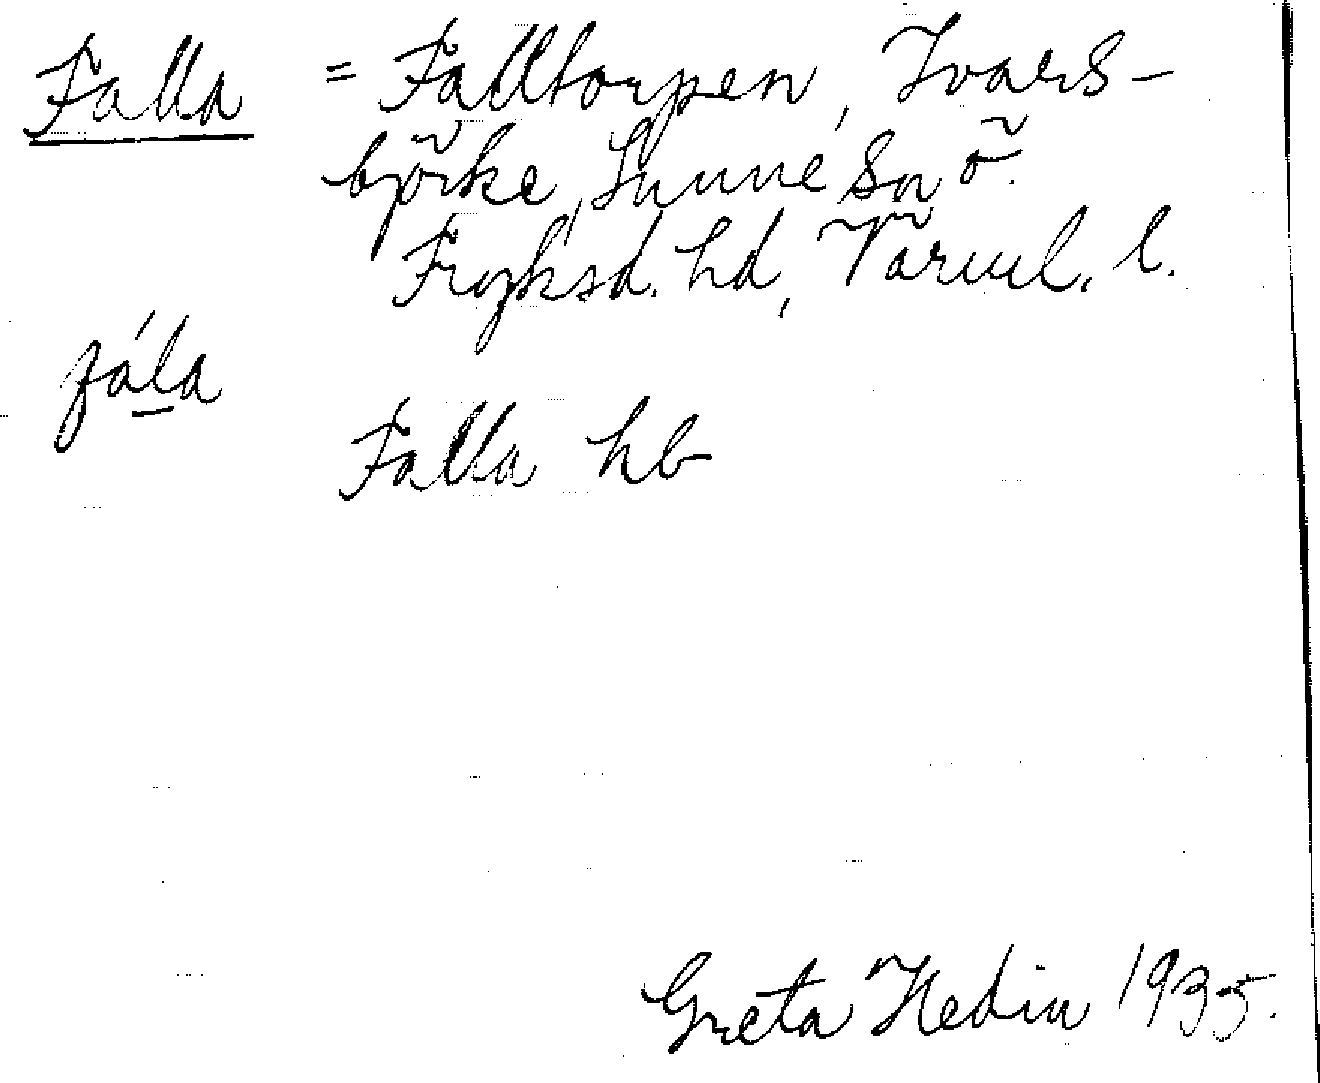 Falla = Falltorpen, Ivars-
björke, Sunne sn ö.
Fryksd. hd, Värml. l.
fála
Falla hb
Greta Hedin 1935.